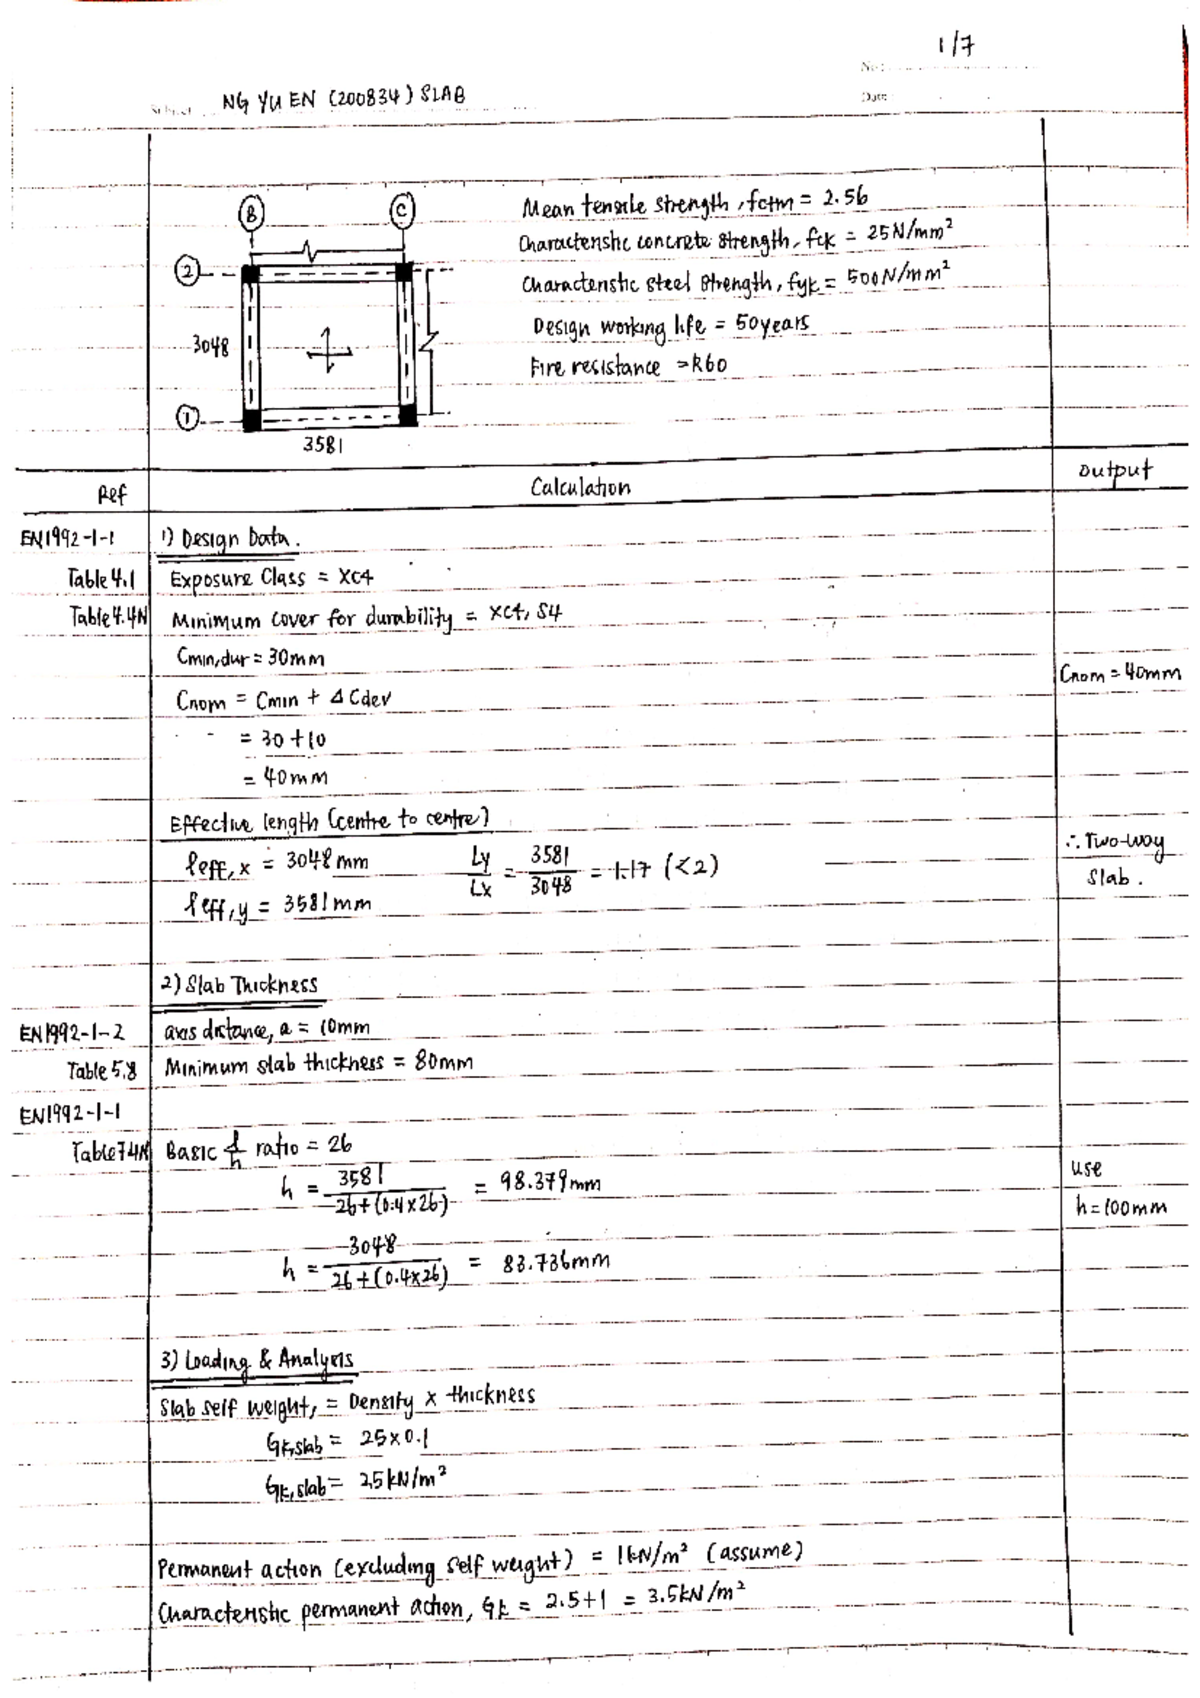 1/7
No:
Date:
Subject NG YU EN (200834) SLAB
B C
2
3048
1
3581
Mean tensile strength, fctm = 2.56
Characteristic concrete strength, fck = 25N/mm²
Characteristic steel strength, fyk = 500N/mm²
Design working life = 50years
Fire resistance = R60
Ref Calculation Output
EN1992-1-1 1) Design Data.
Table 4.1 Exposure Class = XC4
Table 4.4N Minimum cover for durability = XC4, S4
Cmin,dur = 30mm
Cnom = Cmin + ΔCdev Cnom = 40mm
= 30+10
= 40mm
Effective length (centre to centre)
leff,x = 3048mm Ly/Lx = 3581/3048 = 1.17 (<2) ∴ Two-way
leff,y = 3581mm Slab.
2) Slab Thickness
EN1992-1-2 axis distance, a = 10mm
Table 5.8 Minimum slab thickness = 80mm
EN1992-1-1
Table 7.4N Basic l/h ratio = 26
h = 3581/26+(0.4×26) = 98.379mm use
h=100mm
h = 3048/26+(0.4×26) = 83.736mm
3) Loading & Analysis
Slab self weight, = Density × thickness
Gk,slab = 25×0.1
Gk,slab = 2.5kN/m²
Permanent action (excluding self weight) = 1kN/m² (assume)
Characteristic permanent action, Gk = 2.5+1 = 3.5kN/m²